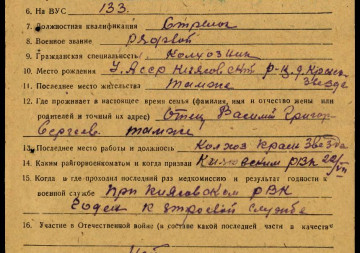 6. На ВУС 133.
7. Должностная квалификация Стрелок
8. Военное звание рядовой
9. Гражданская специальность Колхозник
10. Место рождения У. Асср Киясовский р-н, д. Красн. Звезда
11. Последнее место жительства там же
12. Где проживает в настоящее время семья (фамилия, имя и отчество жены или
родителей и точный их адрес) Отец Василий Григор.
Сергеев. там же
13. Последнее место работы и должность Колхоз Красн Звезда
14. Каким райгорвоенкоматом и когда призван Киясовским РВК
15. Когда и где проходил последний раз медкомиссию и результат годности к
военной службе При Киясовском РВК
Годен к строевой службе
16. Участие в Отечественной войне (в составе какой последней части в качестве
Нет